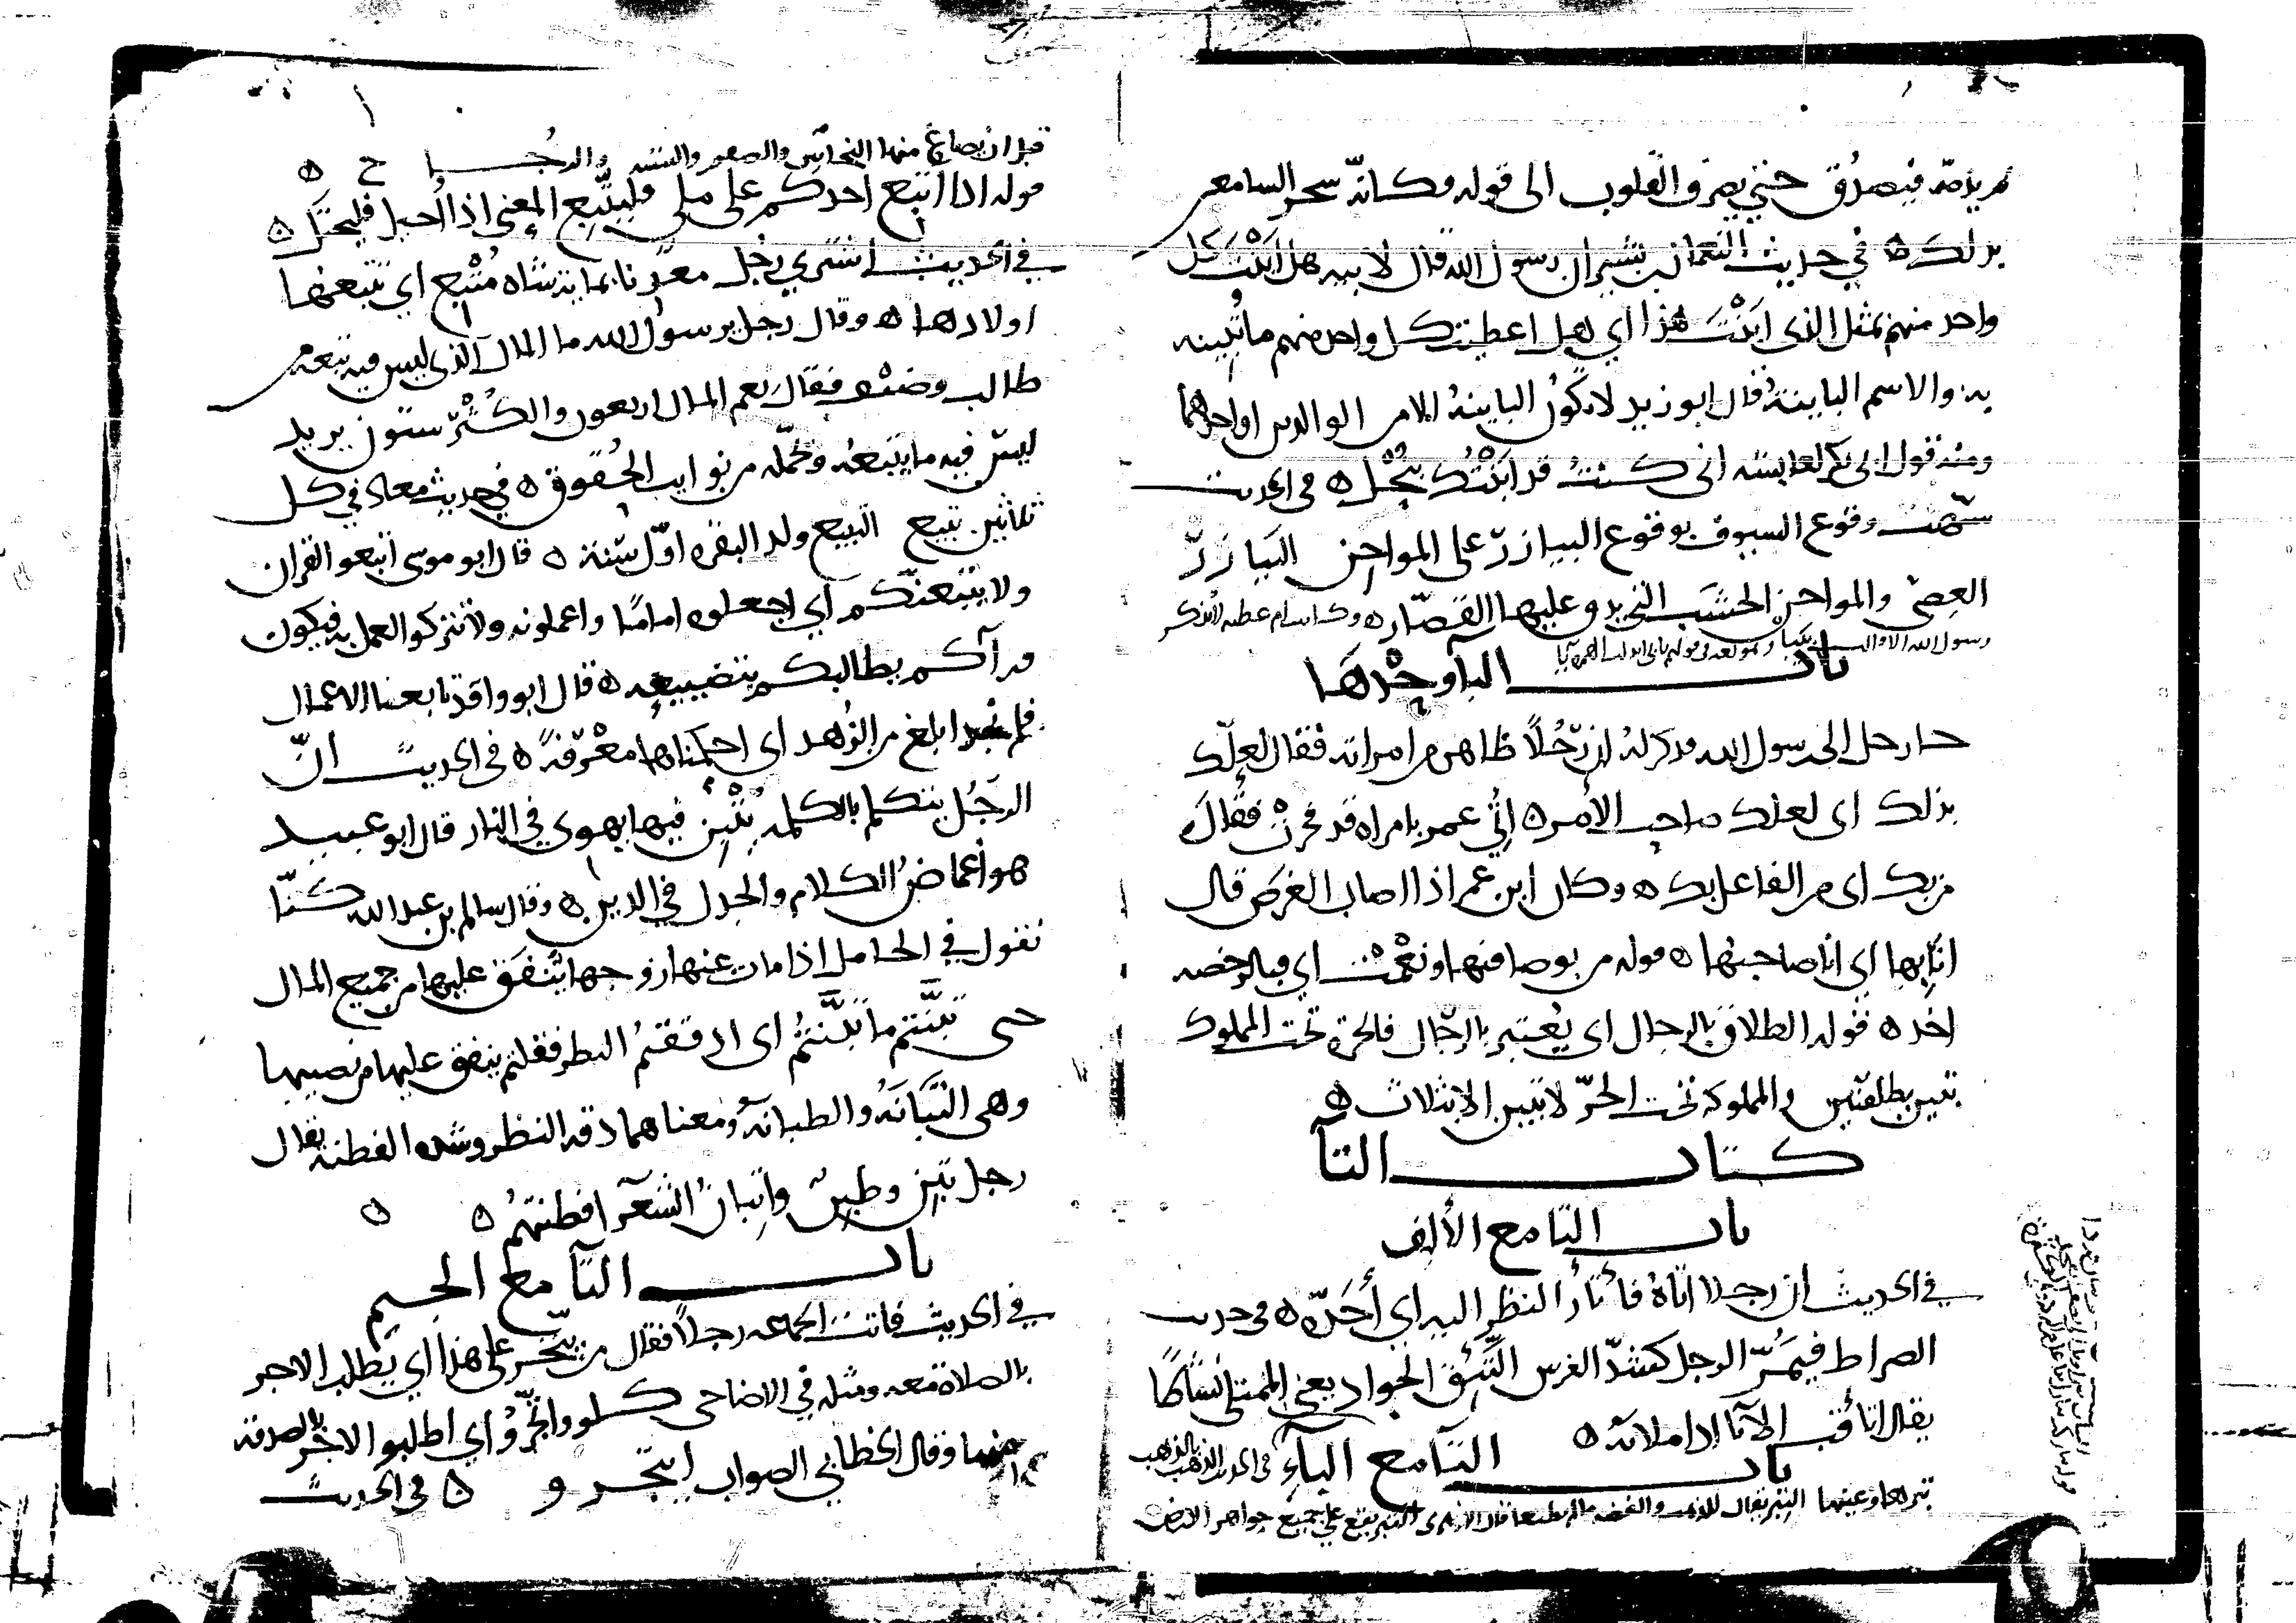 ثم يذمه فيصدق حتى يصرف القلوب الى قوله فكانه سحر السامع
بذلك ه في حديث النعمان بن بشير ان رسول الله قال لابيه هل ابنت كل
واحد منهم مثل الذى ابنت هذا اي هل اعطيت كل واحد منهم ما تبينه
به والاسم الباينة قال ابو زيد لا تكون الباينة الا من الوالدين او احدهما
ومنه قول ابى بكر لعايشه انى كنت قد ابنتك بنحل ه فى الحديث
شبهت وقوع السيوف بوقوع البيازر على المواجن البيازر
العصي والمواجن الخشب التي يدق عليها القصار ه وكانت ام عطيه لا تذكر
رسول الله الا قالت
باب الباء وحدها
جا رجل الى رسول الله فذكر له ان رجلا ظاهر من امراته فقال لعلك
بذلك اى لعلك صاحب الامر ه اتي عمر بامراه قد فجرت فقال
من بك اى من الفاعل بك ه وكان ابن عمر اذا اصاب الغرض قال
انا بها اي انا صاحبها ه قوله من توضا فبها ونعمت اي فبالرخصه
اخذ ه قوله الطلاق بالرجال اى يعتبر بالرجال فالحرة تحت المملوك
تبين بطلقتين والمملوكه تحت الحر لا تبين الا بثلاث ه
كتاب التا
باب التا مع الألف
في الحديث ان رجلا اتاه فأتأر النظر اليه اي أحده ه فى حديث
الصراط فيمر الرجل كشد الفرس التئق الجواد يعني الممتلى نشاطا
يقال اتأقت الانا اذا ملاته ه
باب التا مع الباء في الحديث الذهب بالذهب
تبرها وعينها التبر يقال للذهب والفضه ما لم يطبعا قال الازهرى التبر يقع على جميع جواهر الارض
قبل ان يصاغ منها النحاس والصفر والشبه والزجاج ه
قوله اذا اتبع احدكم على ملي فليتبع المعنى اذا احيل فليحتل ه
في الحديث اشترى رجل معدنا بماية شاه متبع اي يتبعها
اولادها ه وقال رجل يرسول الله ما المال الذى ليس فيه تبعه من
طالب وضيف فقال نعم المال اربعون والكثر ستون يريد
ليس فيه ما يتبعه وتحمله من نوايب الحقوق ه في حديث معاذ في كل
ثلثين تبيع التبيع ولد البقره اول سنة ه قال ابو موسى اتبعوا القران
ولا يتبعنكم اي اجعلوه اماما واعملوا به ولا تتركوا العمل به فيكون
ورآكم يطالبكم بتضييعه ه قال ابو واقد تابعنا الاعمال
فلم نجد ابلغ من الزهد اى احكمناها معرفة ه فى الحديث ان
الرجل يتكلم بالكلمه يتبن فيها يهوى في النار قال ابو عبيد
هو اغماض الكلام والجدل في الدين ه وقال سالم بن عبد الله كنا
نقول في الحامل اذا مات عنها زوجها ينفق عليها من جميع المال
حتى تبنتم ما تبنتم اى ادققتم النظر فقلتم ينفق عليها من نصيبها
وهى التبانة والطبانة ومعناهما دقة النظر وشده الفطنة يقال
رجل تبن وطبن واتبان الشعر افطنتهم ه ه
باب التا مع الجيم
في الحديث فاتت الجماعه رجلا فقال من يتجر على هذا اي يطلب الاجر
بالصلاة معه ومثله في الاضاحى كلوا واتجروا اي اطلبوا الاجر بالصدقة
منها وقال الخطابي الصواب ايتجروا ه فى الحديث